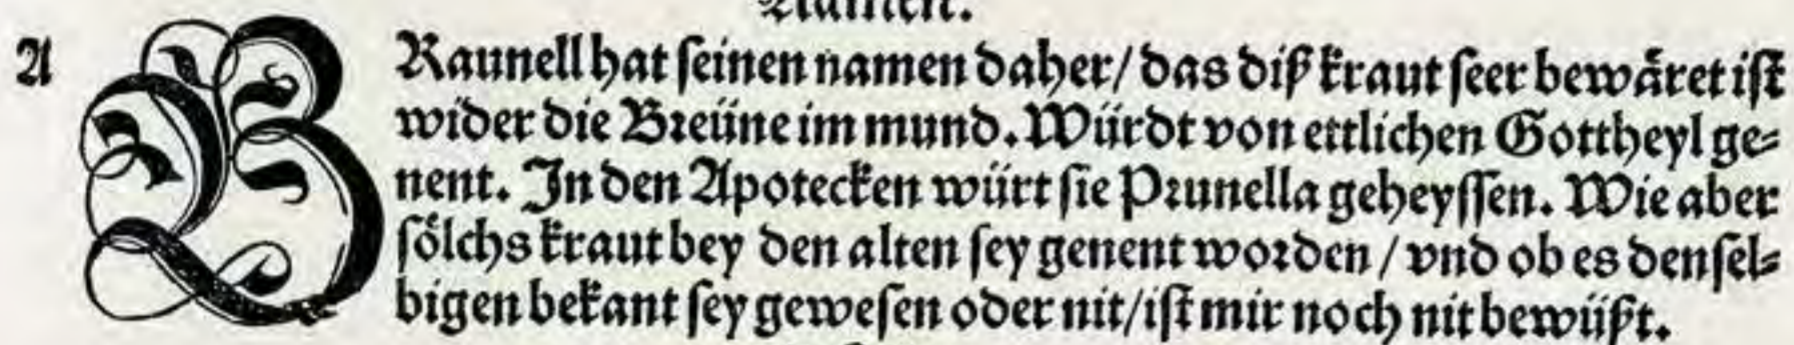 Namen.
A
BRaunell hat ſeinen namen daher/ das diß kraut ſeer bewåret iſt
wider die Breüne im mund. Würdt von ettlichen Gottheyl ge⸗
nent. In den Apotecken würt ſie Prunella geheyſſen. Wie aber
ſoͤlchs kraut bey den alten ſey genent worden / vnd ob es denſel⸗
bigen bekant ſey geweſen oder nit/ iſt mir noch nit bewüßt.